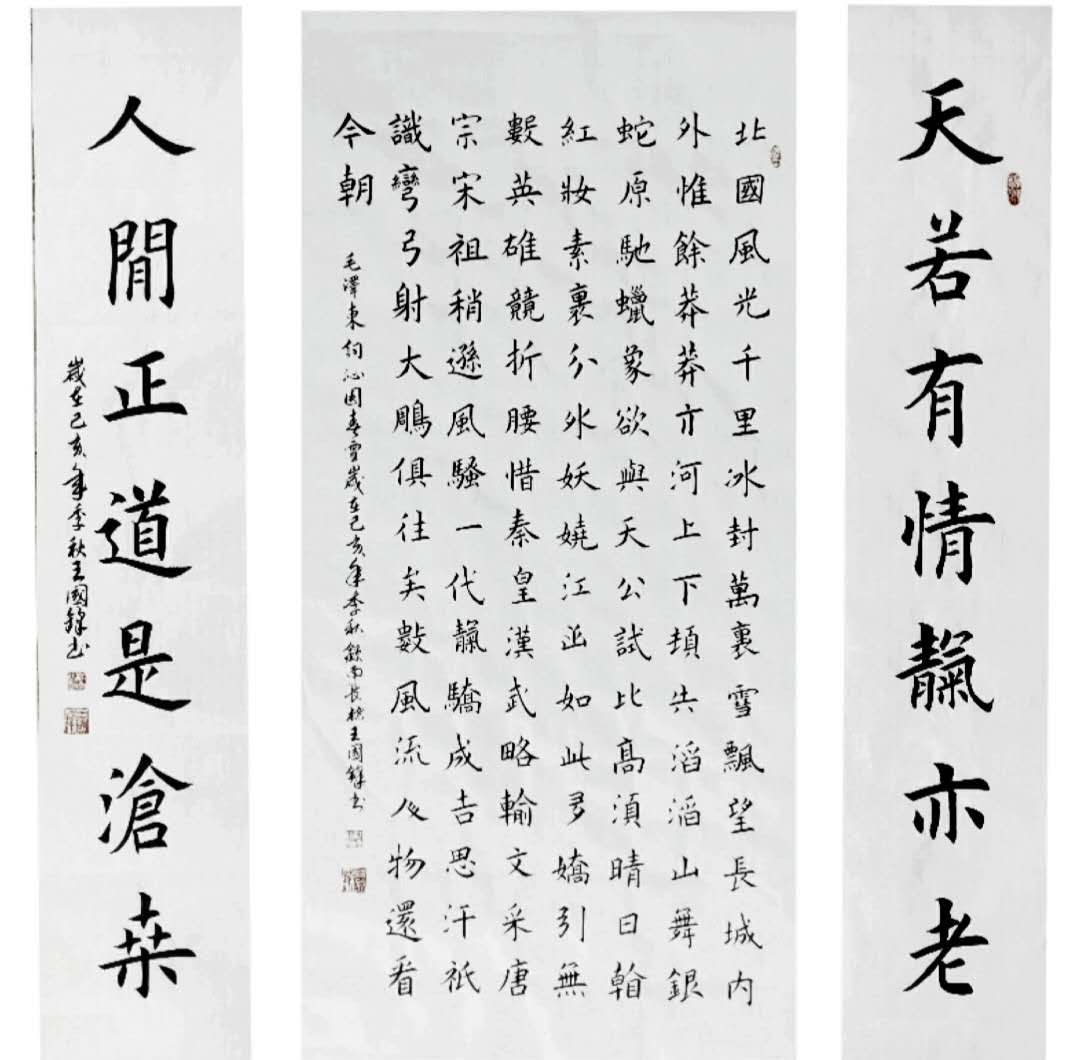 天若有情靝亦老
北國風光千里冰封萬裏雪飄望長城内
外惟餘莽莽亣河上下頓失滔滔山舞銀
蛇原馳蠟象欲與天公試比高須晴日看
紅妝素裹分外妖嬈江山如此多嬌引無
數英雄競折腰惜秦皇漢武略輸文采唐
宗宋祖稍遜風騷一代靝驕成吉思汗祇
識彎弓射大鵰俱往矣數風流人物還看
今朝
毛澤東詞沁園春雪歲在己亥年季秋歙南長標王國鋒書
人閒正道是滄桒
歲在己亥年季秋王國鋒書